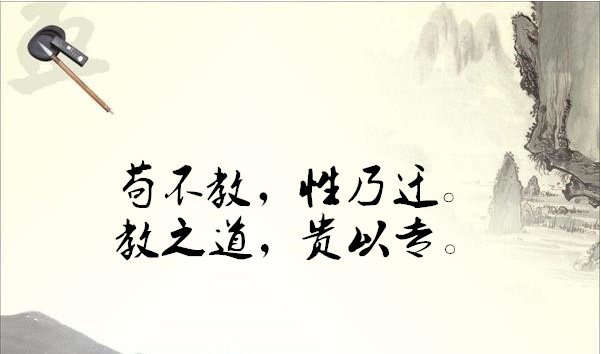 苟不教，性乃迁。
教之道，贵以专。